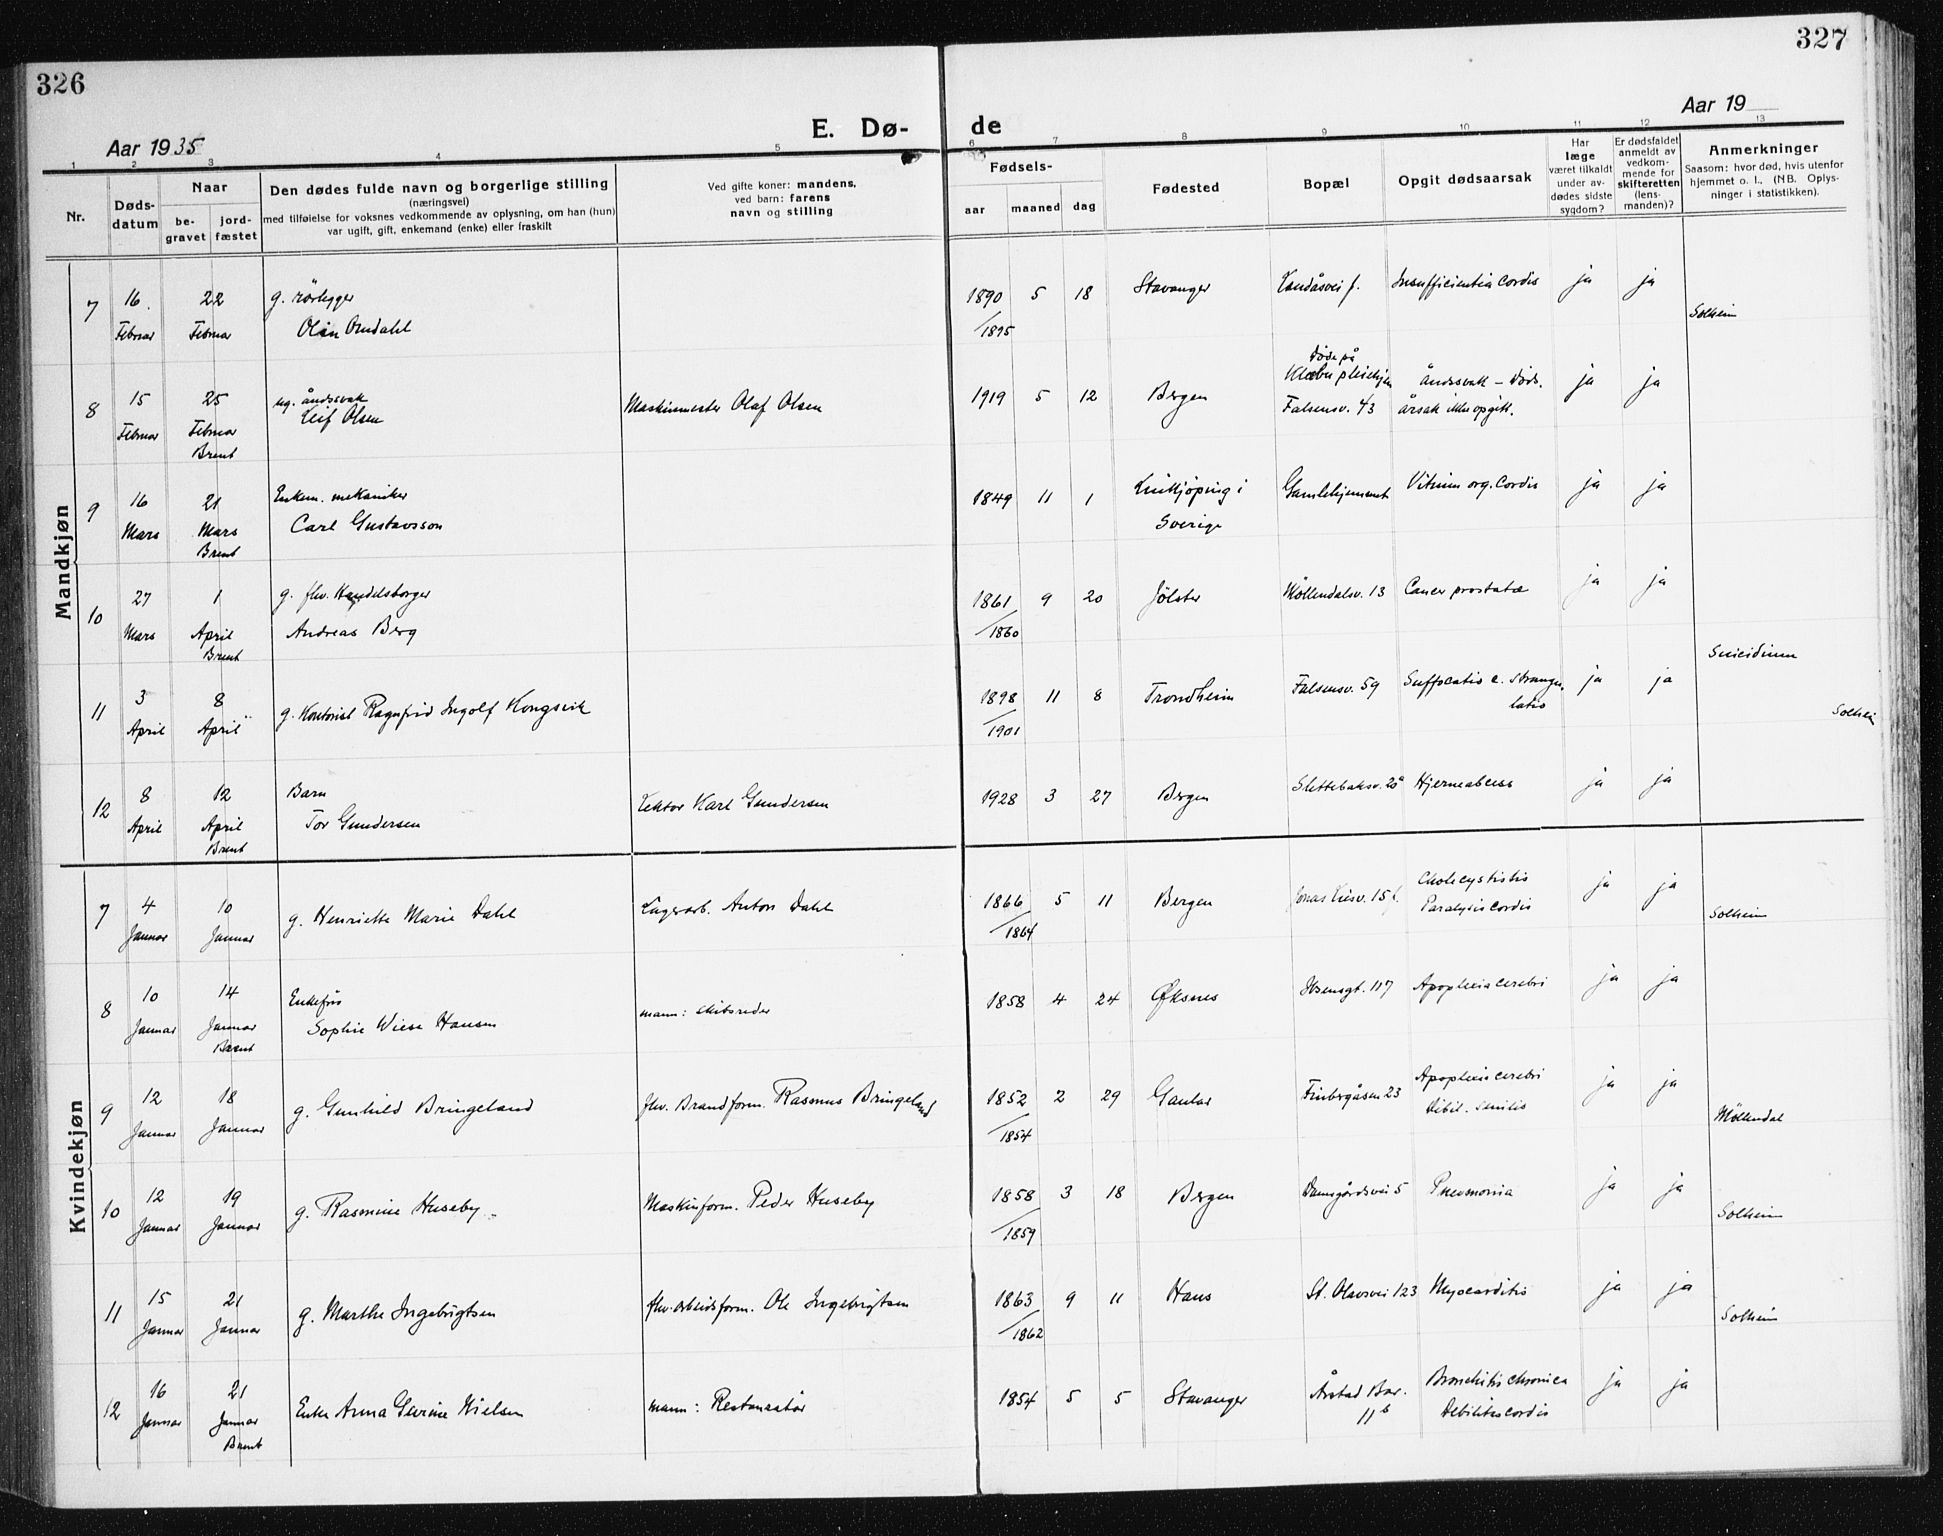 326
327
Aar 1935
E. Dø- de
Aar 19
1 2 3 4 5 6 7 8 9 10 11 12 13
Nr.
Døds-
datum
Naar
be-
gravet
jord-
fæstet
Den dødes fulde navn og borgerlige stilling
(næringsvei)
med tilføielse for voksnes vedkommende av oplysning, om han (hun)
var ugift, gift, enkemand (enke) eller fraskilt
Ved gifte koner: mandens,
ved barn: farens
navn og stilling
Fødsels-
aar maaned dag
Fødested
Bopæl
Opgit dødsaarsak
Har
læge
været tilkaldt
under av-
dødes sidste
sygdom?
Er dødsfaldet
anmeldt av
vedkom-
mende for
skifteretten
(lens-
manden)?
Anmerkninger
Saasom: hvor død, hvis utenfor
hjemmet o. l., (NB. Oplys-
ninger i statistikken).
Mandkjøn
7 16. Februar 22 Februar g. rørlegger
Olin Omdahl 1890 5 18 Stavanger Landåsvei f. Insufficientia cordis ja ja
/1895 Solheim
8 15 Februar 25 Februar Brent ug. åndssvak
Leif Olsen Maskinmester Olaf Olsen 1919 5 12 Bergen Døde på
Klæbu pleiehjem
Falsensv. 43 Åndssvak - Døds.
årsak ikke opgitt. ja ja
9 16 Mars 21 Mars Brent Enkem. mekaniker
Carl Gustavsson 1849 11 1 Linkjöping i
Sverige Gamlehjemmet Vitium org. Cordis ja ja
10 27 Mars 1 April Brent g. fhv. Handelsborger
Andreas Berg 1861 9 20 Jølster Møllendalsv. 13 Cancer prostatæ ja ja
/1860
11 3 April 8 April g. Kontorist Ragnfrid Ingolf Kongsvik 1898 11 8 Trondheim Falsensv. 59 Suffocatio e. strangu.
latio ja ja Suicidium
/1901 Solheim
12 8 April 12 April Brent Barn
Tor Gundersen Lektor Karl Gundersen 1928 3 27 Bergen Slettebaksv. 20 Hjerneabcess ja ja
Kvindekjøn
7 4 Januar 10 Januar g. Henriette Marie Dahl Lagerarb. Anton Dahl 1866 5 11 Bergen Jonas Liesv. 15 f. Cholecystitis
Paralysis cordis ja ja
/1864 Solheim
8 10 Januar 14 Januar Brent Enkefru
Sophie Wiese Hansen mann: skibsreder 1858 4 24 Øksnes Ibsensgt. 117 Apoplexia cerebri ja ja
9 12 Januar 18 Januar g. Gunhild Bringeland fhv. Brandform. Rasmus Bringeland 1852 2 29 Gaular Finbergåsen 23 Apoplexis cerebri
Debil. senilis ja ja
/1854 Möllendal
10 12 Januar 19 Januar g. Rasmine Huseby Maskinform. Peder Huseby 1858 3 18 Bergen Damsgårdsvei 5 Pneumonia ja ja
/1859 Solheim
11 15 Januar 21 Januar g. Marthe Ingebrigtsen fhv. arbeidsform. Ole Ingebrigtsen 1863 9 11 Haus St. Olavsvei 123 Myocarditis ja ja
/1862 Solheim
12 16 Januar 21 Januar Brent Enke Anna Gurine Nielsen mann: Restauratør 1854 5 5 Stavanger Årstad Bar.
11 b Bronchitis chronica
Debilitas cordis ja ja